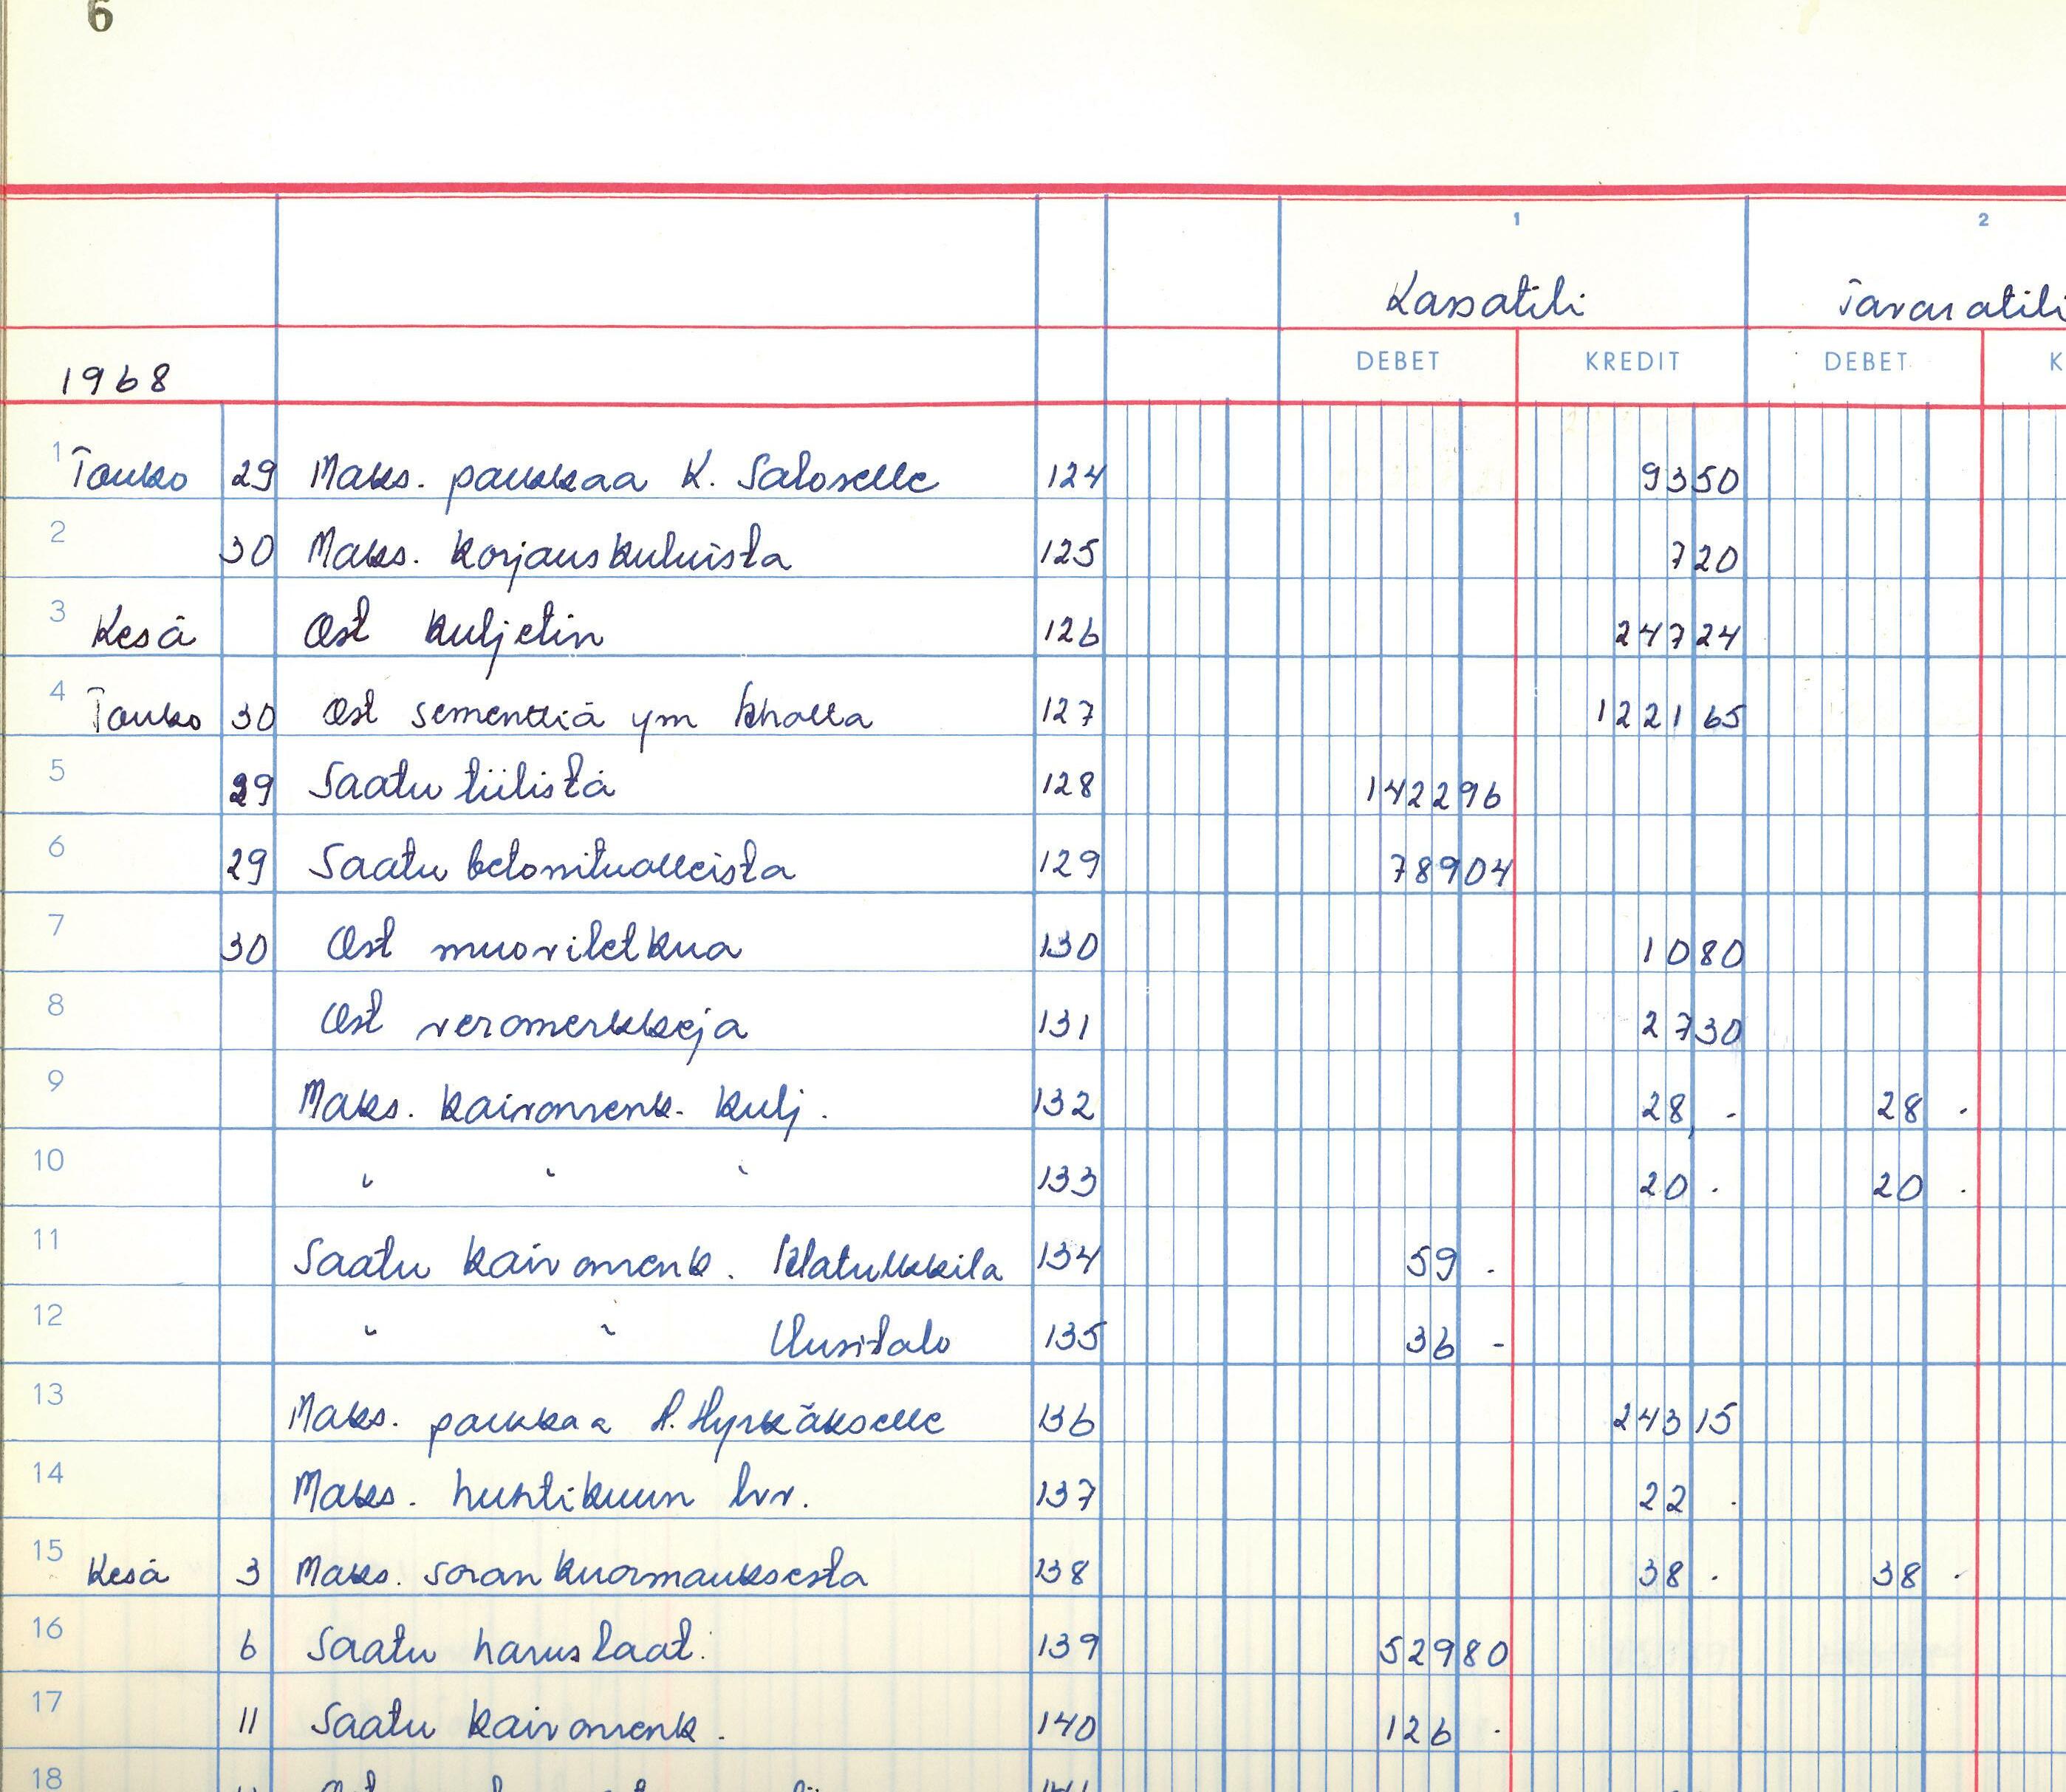 6
1 2
Kassatili Tavaratili
DEBET KREDIT DEBET K
1968
1 Touko 29 Maks. palkkaa K. Saloselle 124 93 50
2 30 Maks. korjauskuluista 125 7 20
3 Kesä Ost kuljetin 126 247 24
4 Touko 30 Ost sementtiä ym 127 1221 65
5 29 Saatu tiilistä 128 1422 96
6 29 Saatu betonituotteista 129 789 04
7 30 Ost muoviletkua 130 10 80
8 Ost veromerkkejä 131 27 30
9 Maks. kaivonrenk. kulj. 132 28, - 28 -
10 " " " 133 20 - 20 -
11 Saatu kaivonrenk. 134 59 -
12 " " Uusitalo 135 36 -
13 Maks. palkkaa A. Hyrkäkselle 136 243 15
14 Maks. huhtikuun lvv. 137 22 -
15 Kesä 3 Maks. soran kuormauksesta 138 38 - 38 -
16 6 Saatu haruslaat. 139 529 80
17 11 Saatu kaivonrenk. 140 126 -
18